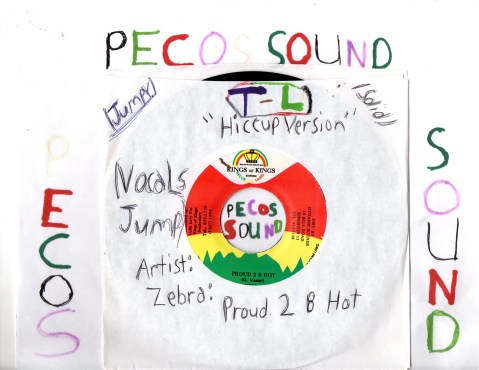 PECOS SOUND
(Jumpy)
T-L
(Solid)
"Hiccup Version"
PECOS
SOUND
Vocals
Jump
Artist:
Zebra:
Proud 2 B Hot
KINGS OF KINGS
PECOS
SOUND
PROUD 2 B HOT